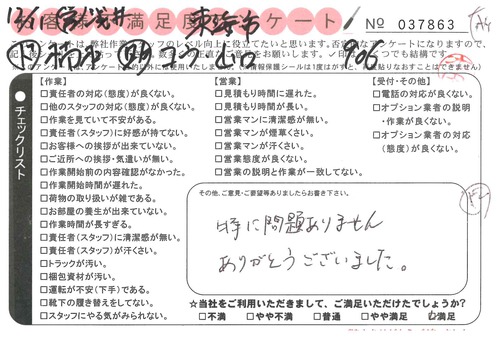 お客様満足度アンケート! No 037863
【作業】
□責任者の対応(態度)が良くない。
□他のスタッフの対応(態度)が良くない。
□作業を見ていて不安がある。
□責任者(スタッフ)に好感が持てない。
□お客様への挨拶が出来ていない。
□ご近所への挨拶・気遣いが無い。
□作業開始前の内容確認がなかった。
□作業開始時間が遅れた。
□荷物の取り扱いが雑である。
□お部屋の養生が出来ていない。
□作業時間が長すぎる。
□責任者(スタッフ)に清潔感が無い。
□責任者(スタッフ)が汗くさい。
□トラックが汚い。
□梱包資材が汚い。
□運転が不安(下手)である。
□靴下の履き替えをしてない。
□スタッフにやる気がみられない。
【営業】
□見積もり時間に遅れた。
□見積もり時間が長い。
□営業マンに清潔感が無い。
□営業マンが煙草くさい。
□営業マンが汗くさい。
□営業態度が良くない。
□営業の説明と作業が一致してない。
【受付・その他】
□電話の対応が良くない。
□オプション業者の説明
・作業が良くない。
□オプション業者の対応
(態度)が良くない。
チェックリスト
その他、ご意見・ご要望等ありましたらお書き下さい。
特に問題ありません
ありがとうございました。
☆当社をご利用いただきまして、ご満足いただけたでしょうか?
□不満 □やや不満 □普通 □やや満足 ☑満足